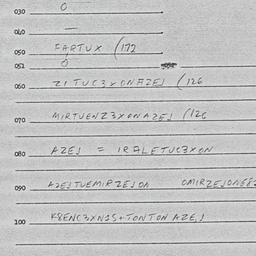 030 O
040 —
050 FARTUX (172
051 O
060 ZITUC3XONAZEJ (126
070 MIRTUENZ3XONAZEJ (126
080 AZEJ = IRALETUC3XON
090 AZEJTUEMIRZEJON OMIRZEJONE82
100 K8ENC3XN1S+TONTON AZEJ